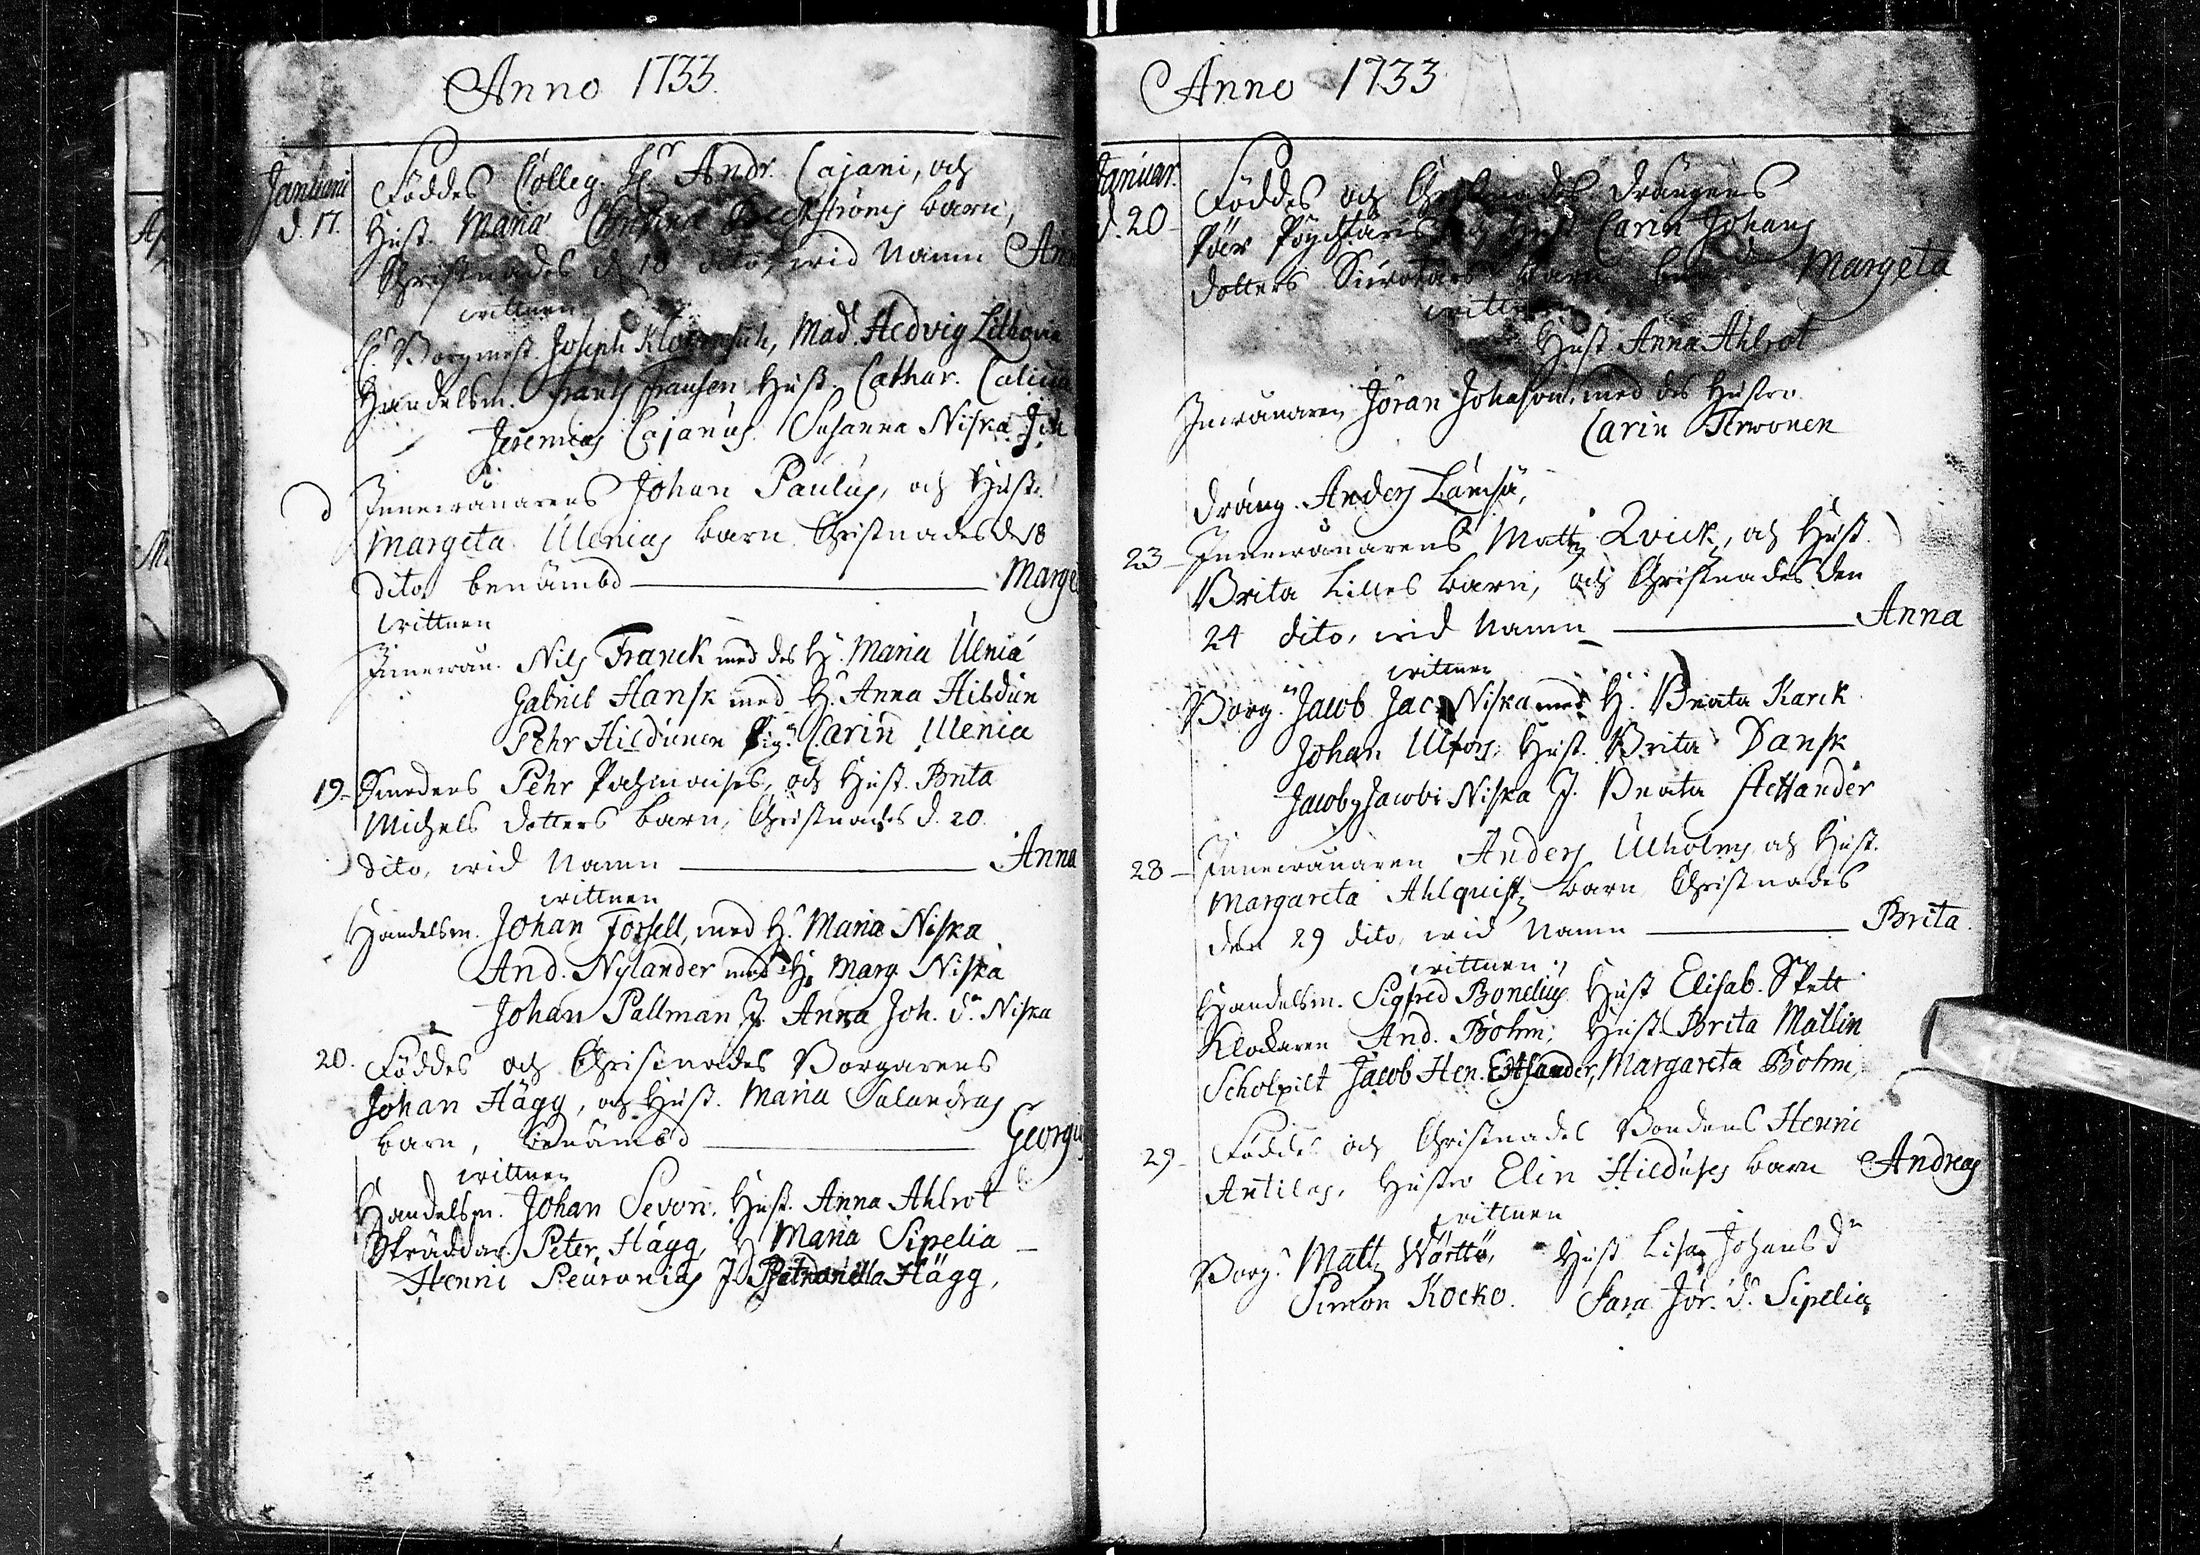 Anno 1733.
Januarii
d. 17.
Föddes Colleg. Hr Andr. Cajani, och
Hust. Maria Christina barn,
Christnades d. 18 dito, wid Namn
wittnen
H. Borgmest. Joseph Mad. Hedvig
Handelsm. Frants Fransen Hust. Cathar.
Jeremias Cajanus. Susanna Niska
Innewånarens Johan Paulus, och Hust.
Margeta Ulenias barn Christnades d. 18
dito, benämbd
wittnen
Innewån. Nils Franck med des H. Maria Ulenia
Gabriel Hansk med H. Anna Hildun
Pehr Hildunen Pig. Carin Ulenia
19. Smedens Pehr och Hust. Brita
Michels dotters barn, Christnades d. 20
dito, wid Namn Anna
wittnen
Handelsm. Johan Forsell, med H. Maria Niska
And. Nylander med H. Marg. Niska
Johan Pallman J. Anna Joh. dr. Niska
20. Föddes och Christnades Borgarens
Johan Hägg, och Hust. Maria Salandras
barn, benämbd Georgius
wittnen
Handelsm. Johan Sevon, Hust. Anna Ahlrot
Skräddar. Peter Hägg, H. Maria Sipelia
Henric Peuronius J. Petronella Hägg,
Anno 1733
Januar.
d. 20
Föddes och Christnades drängens
Pär och Hust Carin Johans
dotters barn Margeta
wittnen
Hust. Anna Ahlrot
Inwånaren Jöran Johnson, med des Hustro
Carin Terwonen
dräng. Anders Lämsä,
23 Innewånarens Matts Qvick, och Hust.
Brita Lilles barn, och Christnades den
24 dito, wid Namn Anna
wittnen
Borg. Jacob Jac. Niska med H. Beata Karck
Johan Ulfors, Hust. Brita Dansk
Jacobus Jacobi Niska J. Beata
28 Innewånaren Anders Ulholms och Hust.
Margareta Ahlquists barn Christnades
den 29 dito, wid Namn Brita
wittnen
Handelsm. Sigfred Bonelius Hust Elisab. Spett
Klockaren And. Bohm; Hust Brita Mallin
Scholpilt Jacob Hen. Margareta Bohm,
29 Föddes och Christnades Bondens Henric
Antilas, Hustro Elin barn Andreas
wittnen
Borg. Matts Wörttö, Hust Lisa Johans dr
Simon Kocko. Sara Jör. dr. Sipelia